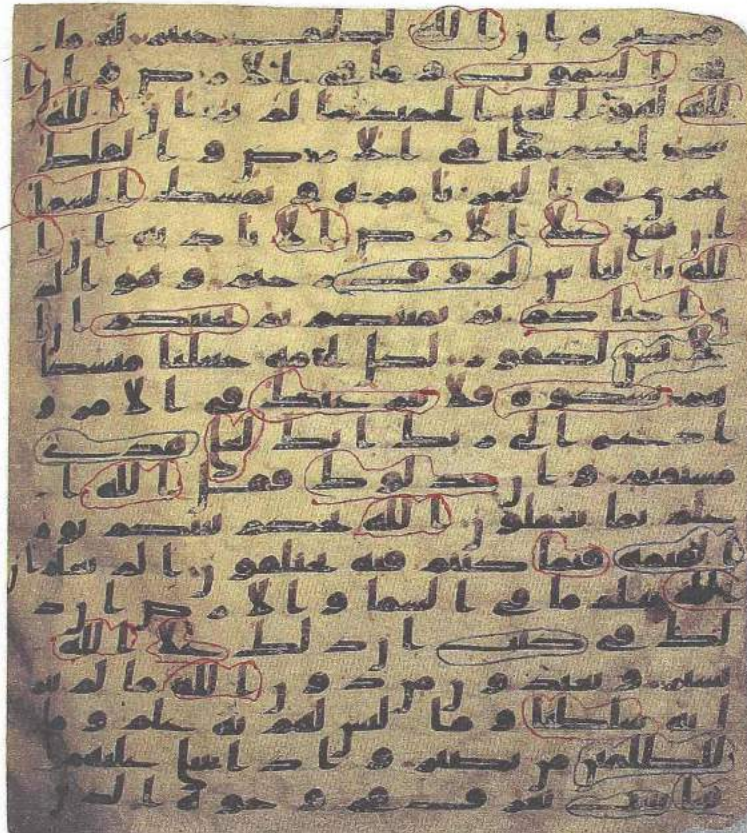 مخضرة ان الله لطيف خبير له ما
في السموت وما في الارض و ان ا
لله لهو الغني الحميد الم تر ان الله
سخر لكم ما في الارض و الفلك
تجري في البحر بامره و يمسك السما
ان تقع علا الارض الا باذنه ان ا
لله بالناس لروف رحيم و هو الذ
ي احياكم ثم يميتكم ثم يحييكم ان ا
لانسن لكفور لكل امة جعلنا منسكا
هم نسكوه فلا ينزعنك في الامر و
ادع الى ربك انك لعلى هدى
مستقيم و ان جدلوك فقل الله ا
علم بما تعملون الله يحكم بينكم يوم
القيمة فيما كنتم فيه تختلفون الم تعلم ان
الله يعلم ما في السما و الارض ان ذ
لك في كتب ان ذلك علا الله
يسير و يعبدون من دون الله ما لم ينز
ل به سلطنا و ما ليس لهم به علم و ما
للظلمين من نصير و اذا تتلى عليهم ا
يتنا بينت تعرف في وجوه الذين